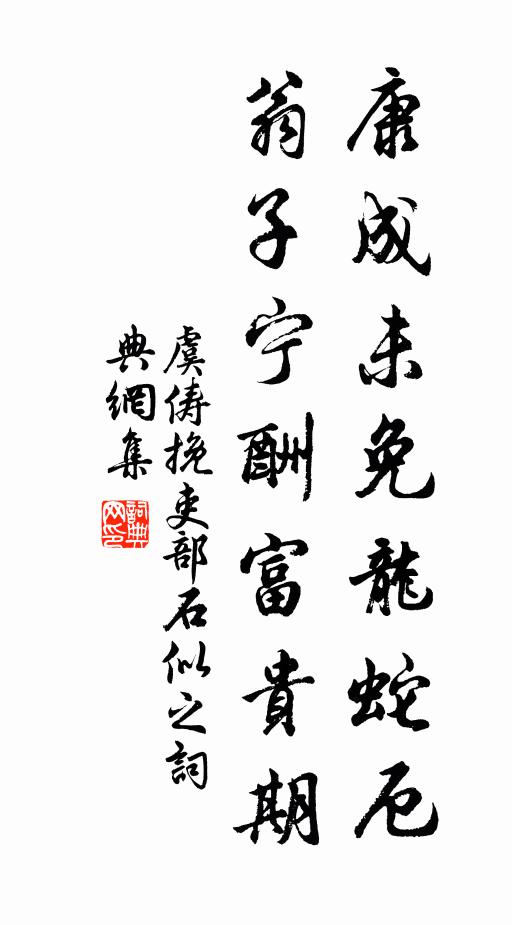 康成未免龍蛇厄
翁子宁酬富貴期
虞儔挽吏部石似之詞
典網集
詞典
网印